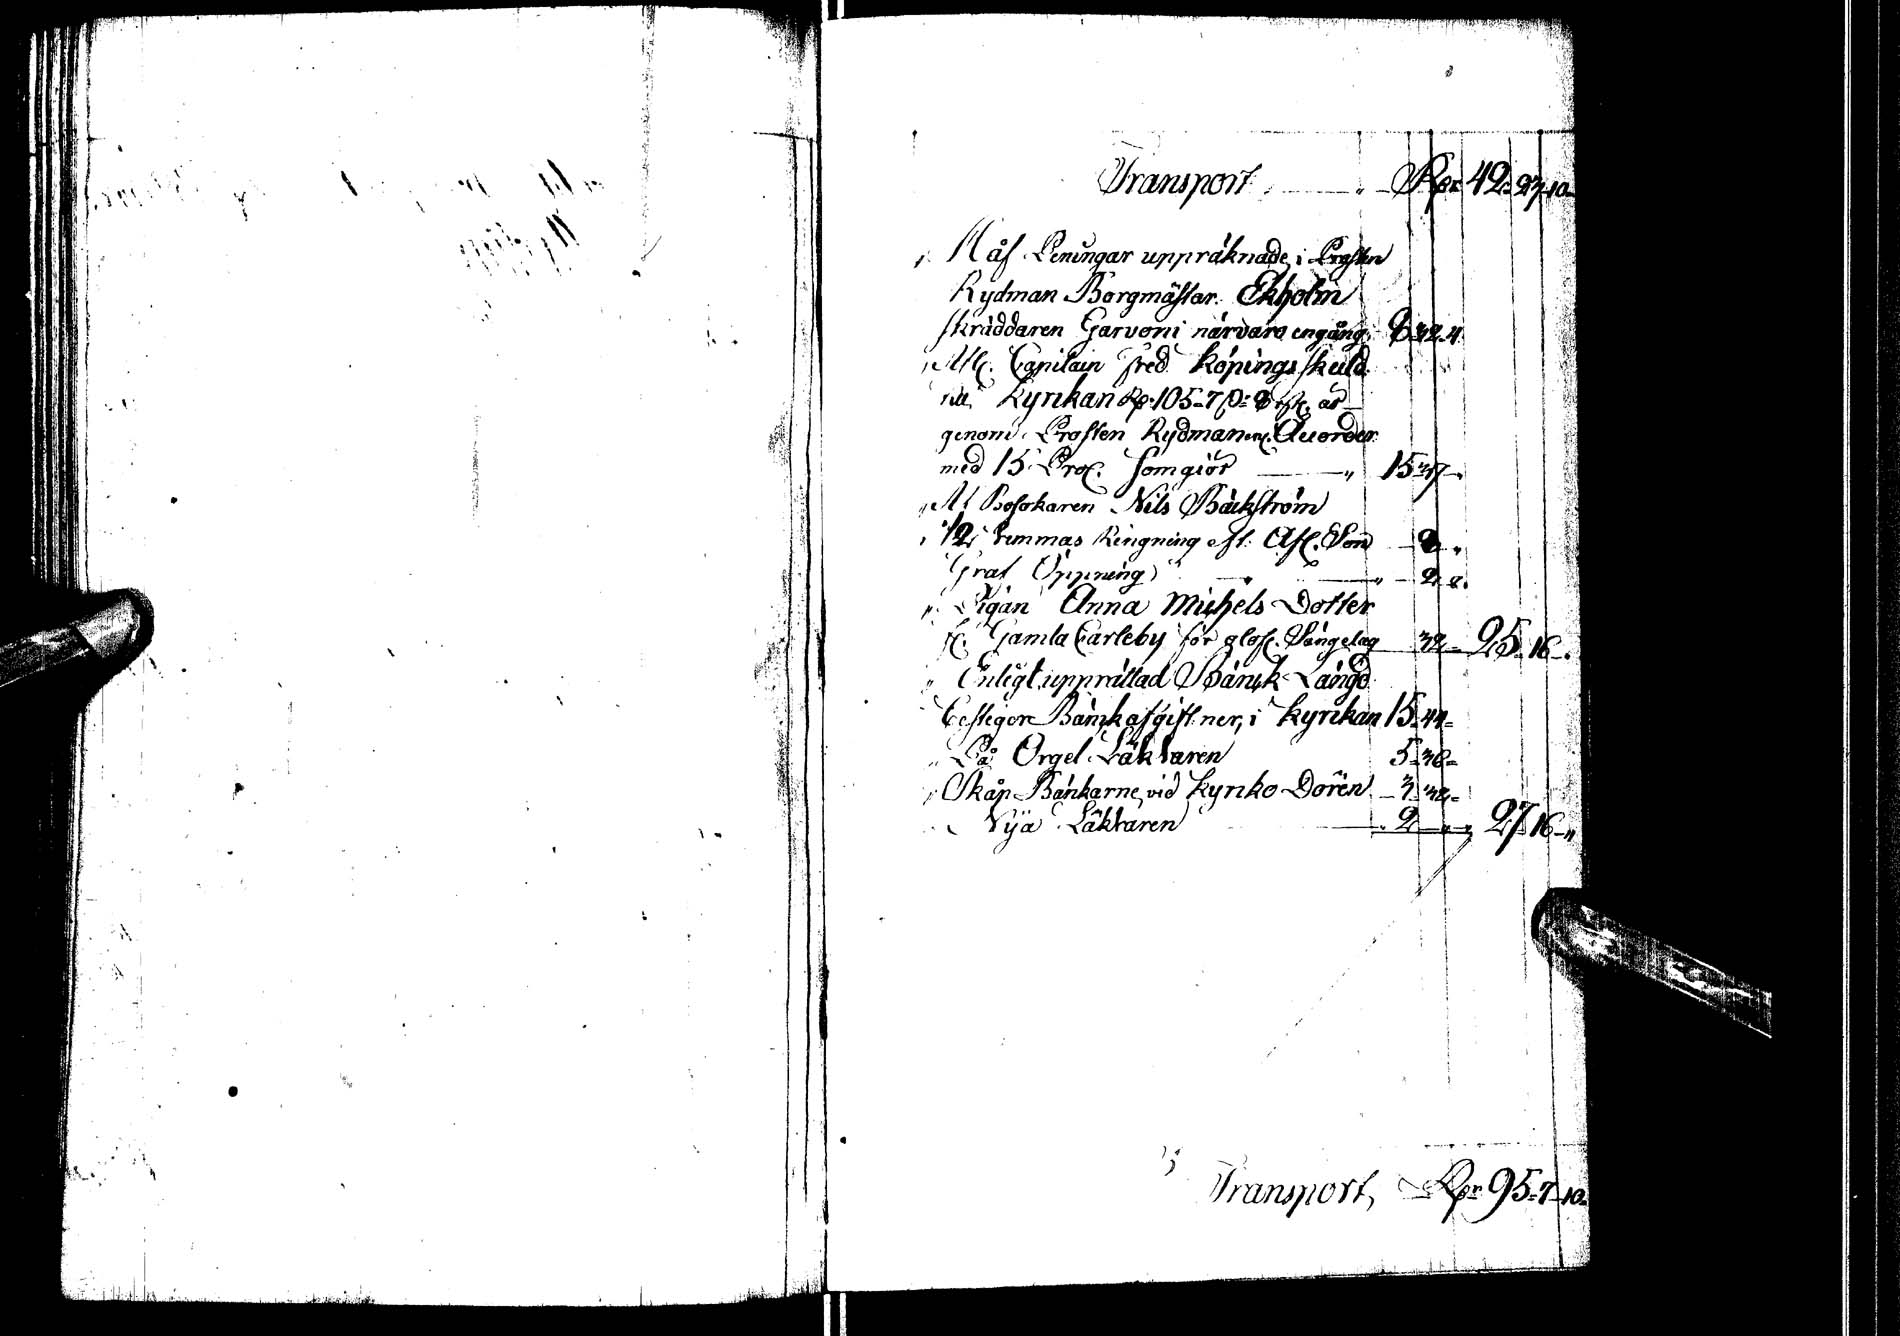 Transport Rdr 42 27 10
Håf Peningar uppräknade, i Prosten
Rydman Borgmästar. Ekholm
skräddaren Garvoni närvaro engång 6 32 4
Capitain Fred. Köpings skuld
till Kyrkan Rdr 105 7
genom Prosten Rydman
med 15 Proc. som giör 15 37
Nils Bäckström
1/2 timmas Ringning Son
Graf Öppning 2
Pigan Anna Michels Dotter
Gamla Carleby för Sängelag 32 25 16
Enligt upprättad Bänk Längd
Bänkafgifterner, i Kyrkan 15 44
På Orgel Läktaren 5 36
Skåp Bänkarne, vid Kyrko Dören 3 32
Nya Läktaren 2 27 16
Transport, Rdr 95 7 10